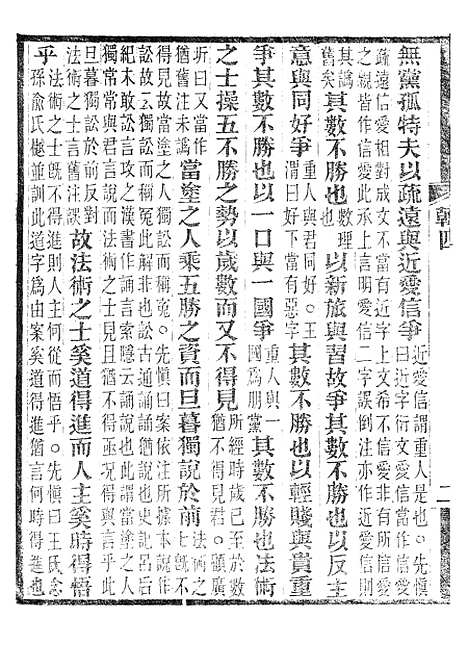 無黨孤特夫以疏遠與近愛信爭近愛信謂重人是也○先慎曰近字衍文愛信當作信愛
疏遠信愛相對成文不當有近字上文希不信愛非有信愛
之親皆作信愛此承上言明愛信二字誤倒注亦作近愛信則
其誤舊矣其數不勝也數理也以新旅與習故爭其數不勝也以反主
意與同好爭重人與君同好○王渭曰好下當有惡字其數不勝也以輕賤與貴重
爭其數不勝也以一口與一國爭重人與一國爲朋黨其數不勝也法術
之士操五不勝之勢以歲數而又不得見所經時歲已有數不得見君○顧廣
圻曰又當作猶舊注未譌當塗之人乘五勝之資而旦暮獨說於前法術之士旣不
故當塗之人獨訟而稱冤○先慎曰案依注所據本說作
訟故云獨訟而稱冤此解非也訟古通誦訟說也史記呂后
紀未敢訟言攻之漢書作誦言索隱云訟誦說也此謂當塗之人
獨常常與君言說而法術之士見且猶不得
旦暮獨訟於前反對法術之士言舊注誤故法術之士奚道得進而人主奚時得悟
乎法術之士旣不得進則人主何從而悟乎○先慎曰王氏念孫俞氏樾並訓此道字爲由案奚道得進猶言何時得進也
韓四
二